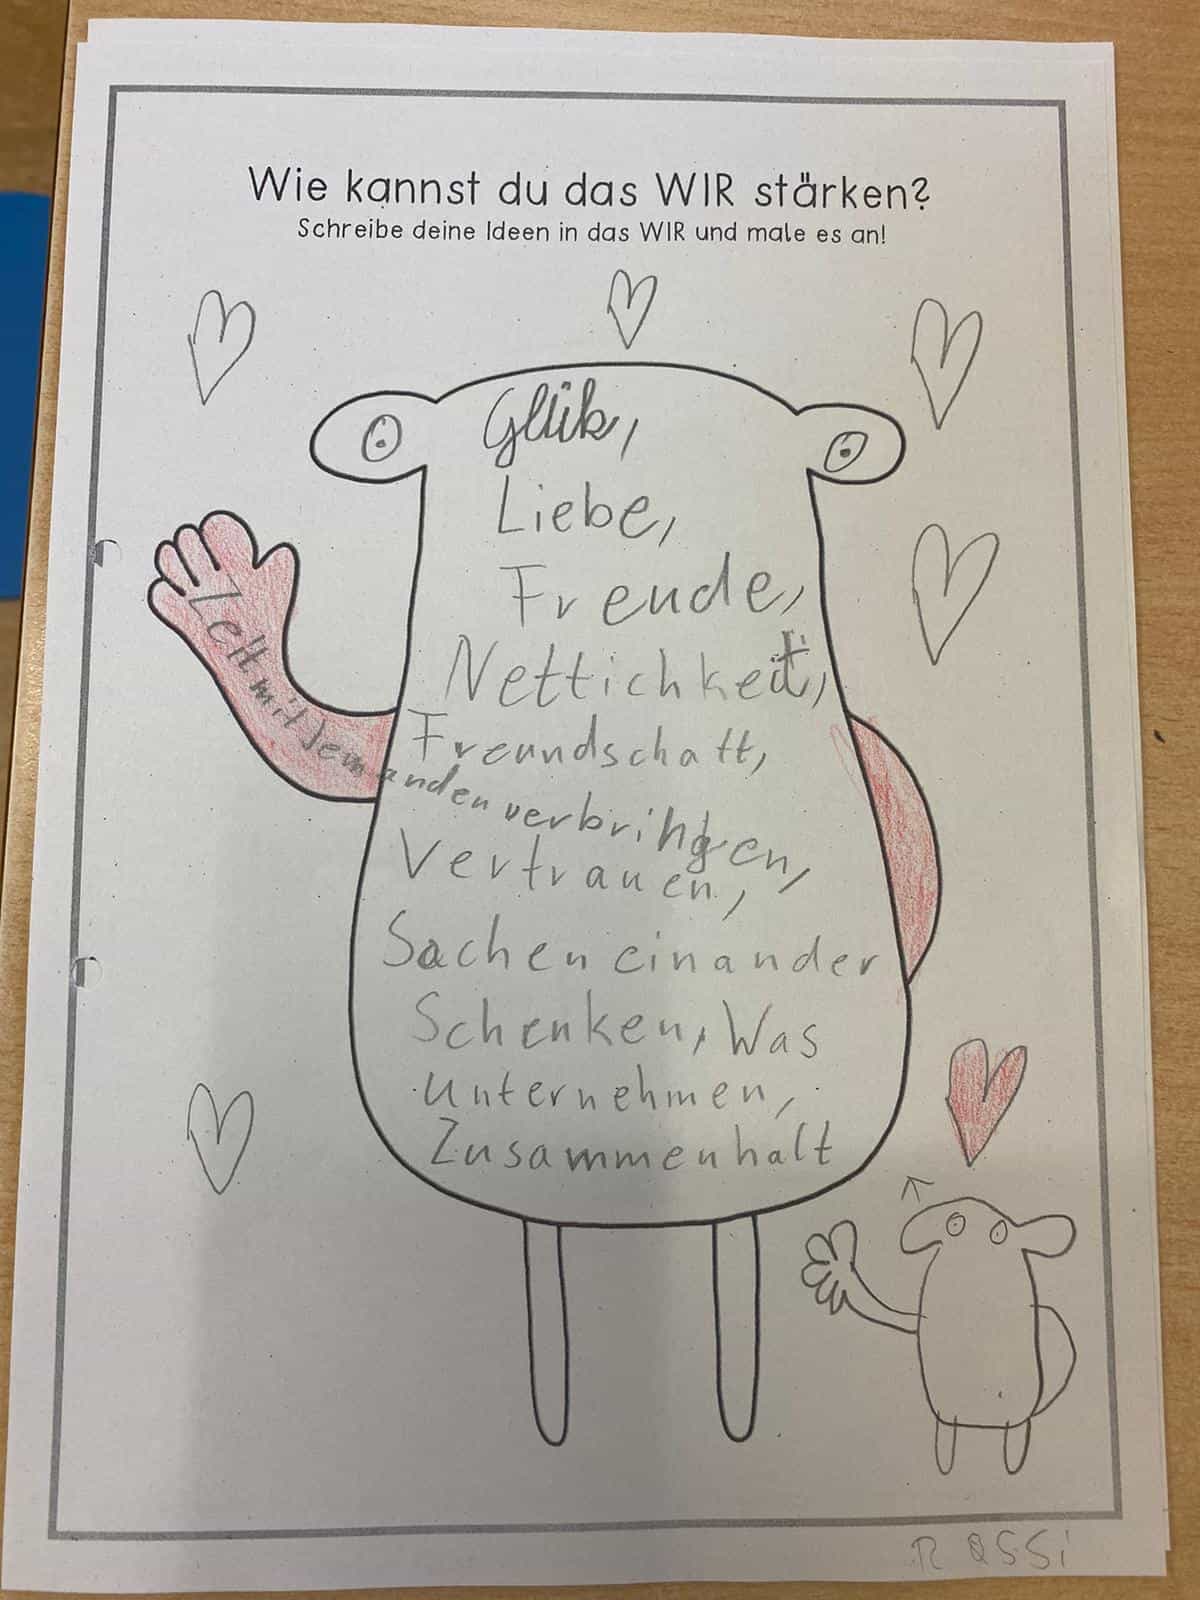 Wie kannst du das WIR stärken?
Schreibe deine Ideen in das WIR und male es an!
Glük,
Liebe,
Freude,
Nettichkeit,
Freundschaft,
Zeit mit Jemanden verbringen,
Vertrauen,
Sachen einander
Schenken, Was
Unternehmen,
Zusammenhalt